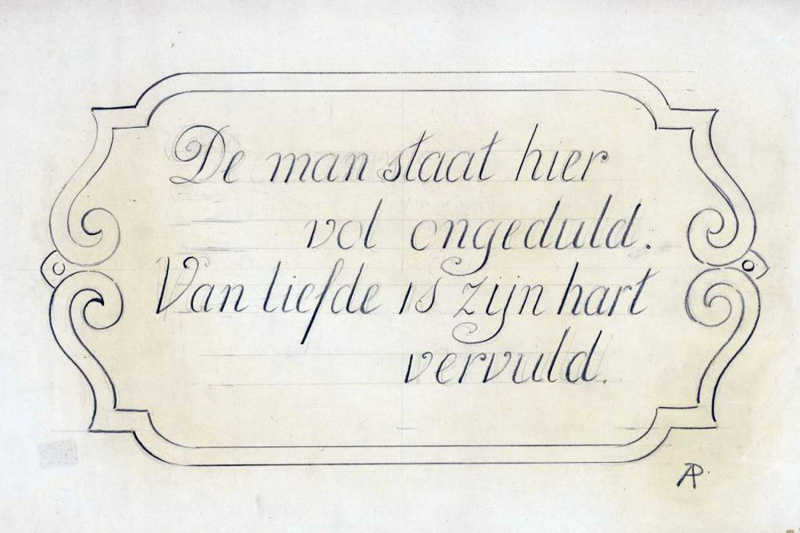 De man staat hier
vol ongeduld.
Van liefde is zijn hart
vervuld.
AP